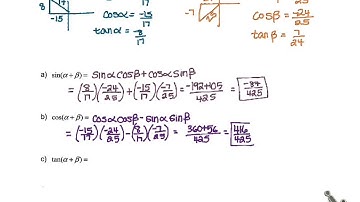 8 17 -15 cosα = -15/17 -7 cosβ = -24/25
tanα = tanβ = 7/24
a) sin(α + β) = sinα cosβ + cosα sinβ
= (8/17)(-24/25) + (-15/17)(-7/25) = -192+105/425 = -87/425
b) cos(α + β) = cosα cosβ - sinα sinβ
= (-15/17)(-24/25) - (8/17)(-7/25) = 360+56/425 = 416/425
c) tan(α + β) =